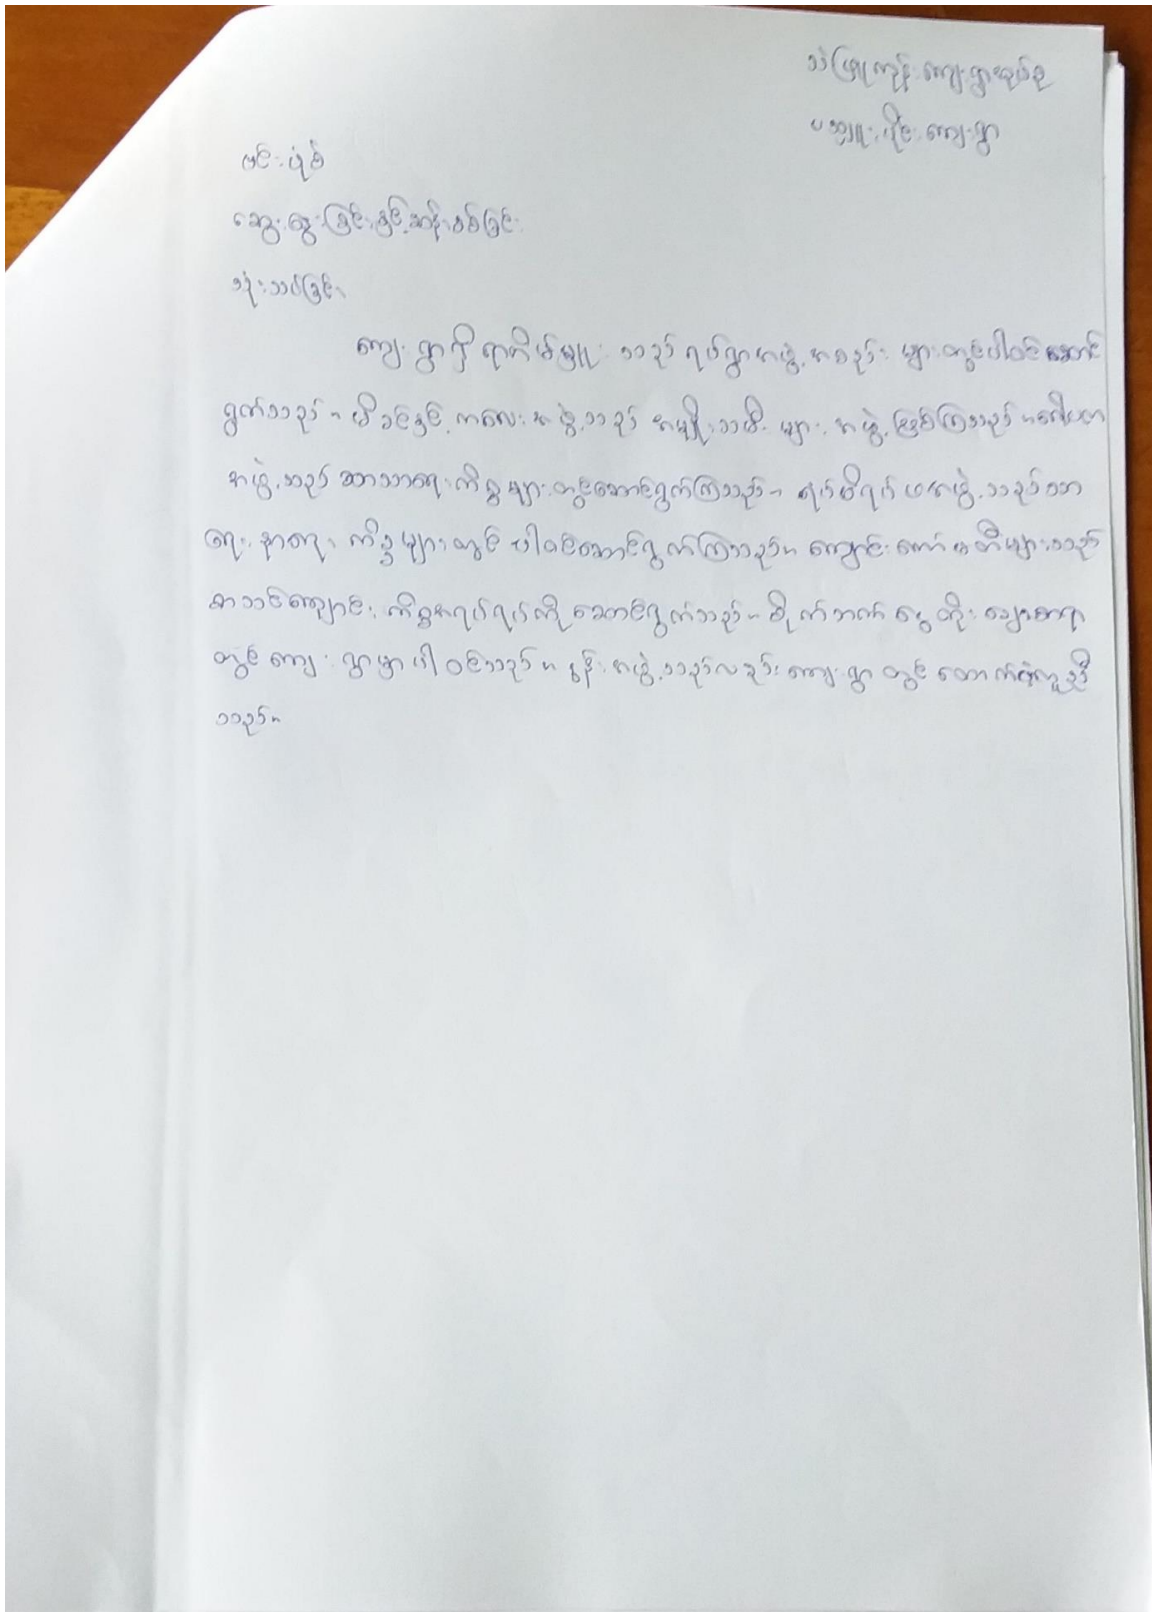 သဲဖြူကုန်းကျေးရွာအုပ်စု
ပသျှူးပိုင်းကျေးရွာ
ဗင်းပုံစံ
ဆွေးနွေးခြင်းနှင့်ဆန်းစစ်ခြင်း
သုံးသပ်ခြင်း
ကျေးရွာရှိ ရာအိမ်မှူး သည် ရပ်ရွာအဖွဲ့အစည်း များတွင်ပါဝင်ဆောင်
ရွက်သည်။ မိခင်နှင့်ကလေးအဖွဲ့သည် အမျိုးသမီး များအဖွဲ့ဖြစ်ကြသည်။ဂေါပက
အဖွဲ့သည် ဘာသာရေးကိစ္စများတွင်ဆောင်ရွက်ကြသည်။ ရပ်မိရပ်ဖအဖွဲ့သည်သာ
ရေးနာရေးကိစ္စများတွင် ပါဝင်ဆောင်ရွက်ကြသည်။ ကျောင်းကော်မတီများသည်
စာသင်ကျောင်းကိစ္စအရပ်ရပ်ကိုဆောင်ရွက်သည်။ စိုက်ဘက် မွေးတိုး ချေးငွေ
တွင် ကျေးရွာမှာပါဝင်သည်။ နွန်းအဖွဲ့သည်လည်းကျေးရွာတွင် ထောက်ပံ့ကူညီ
သည်။